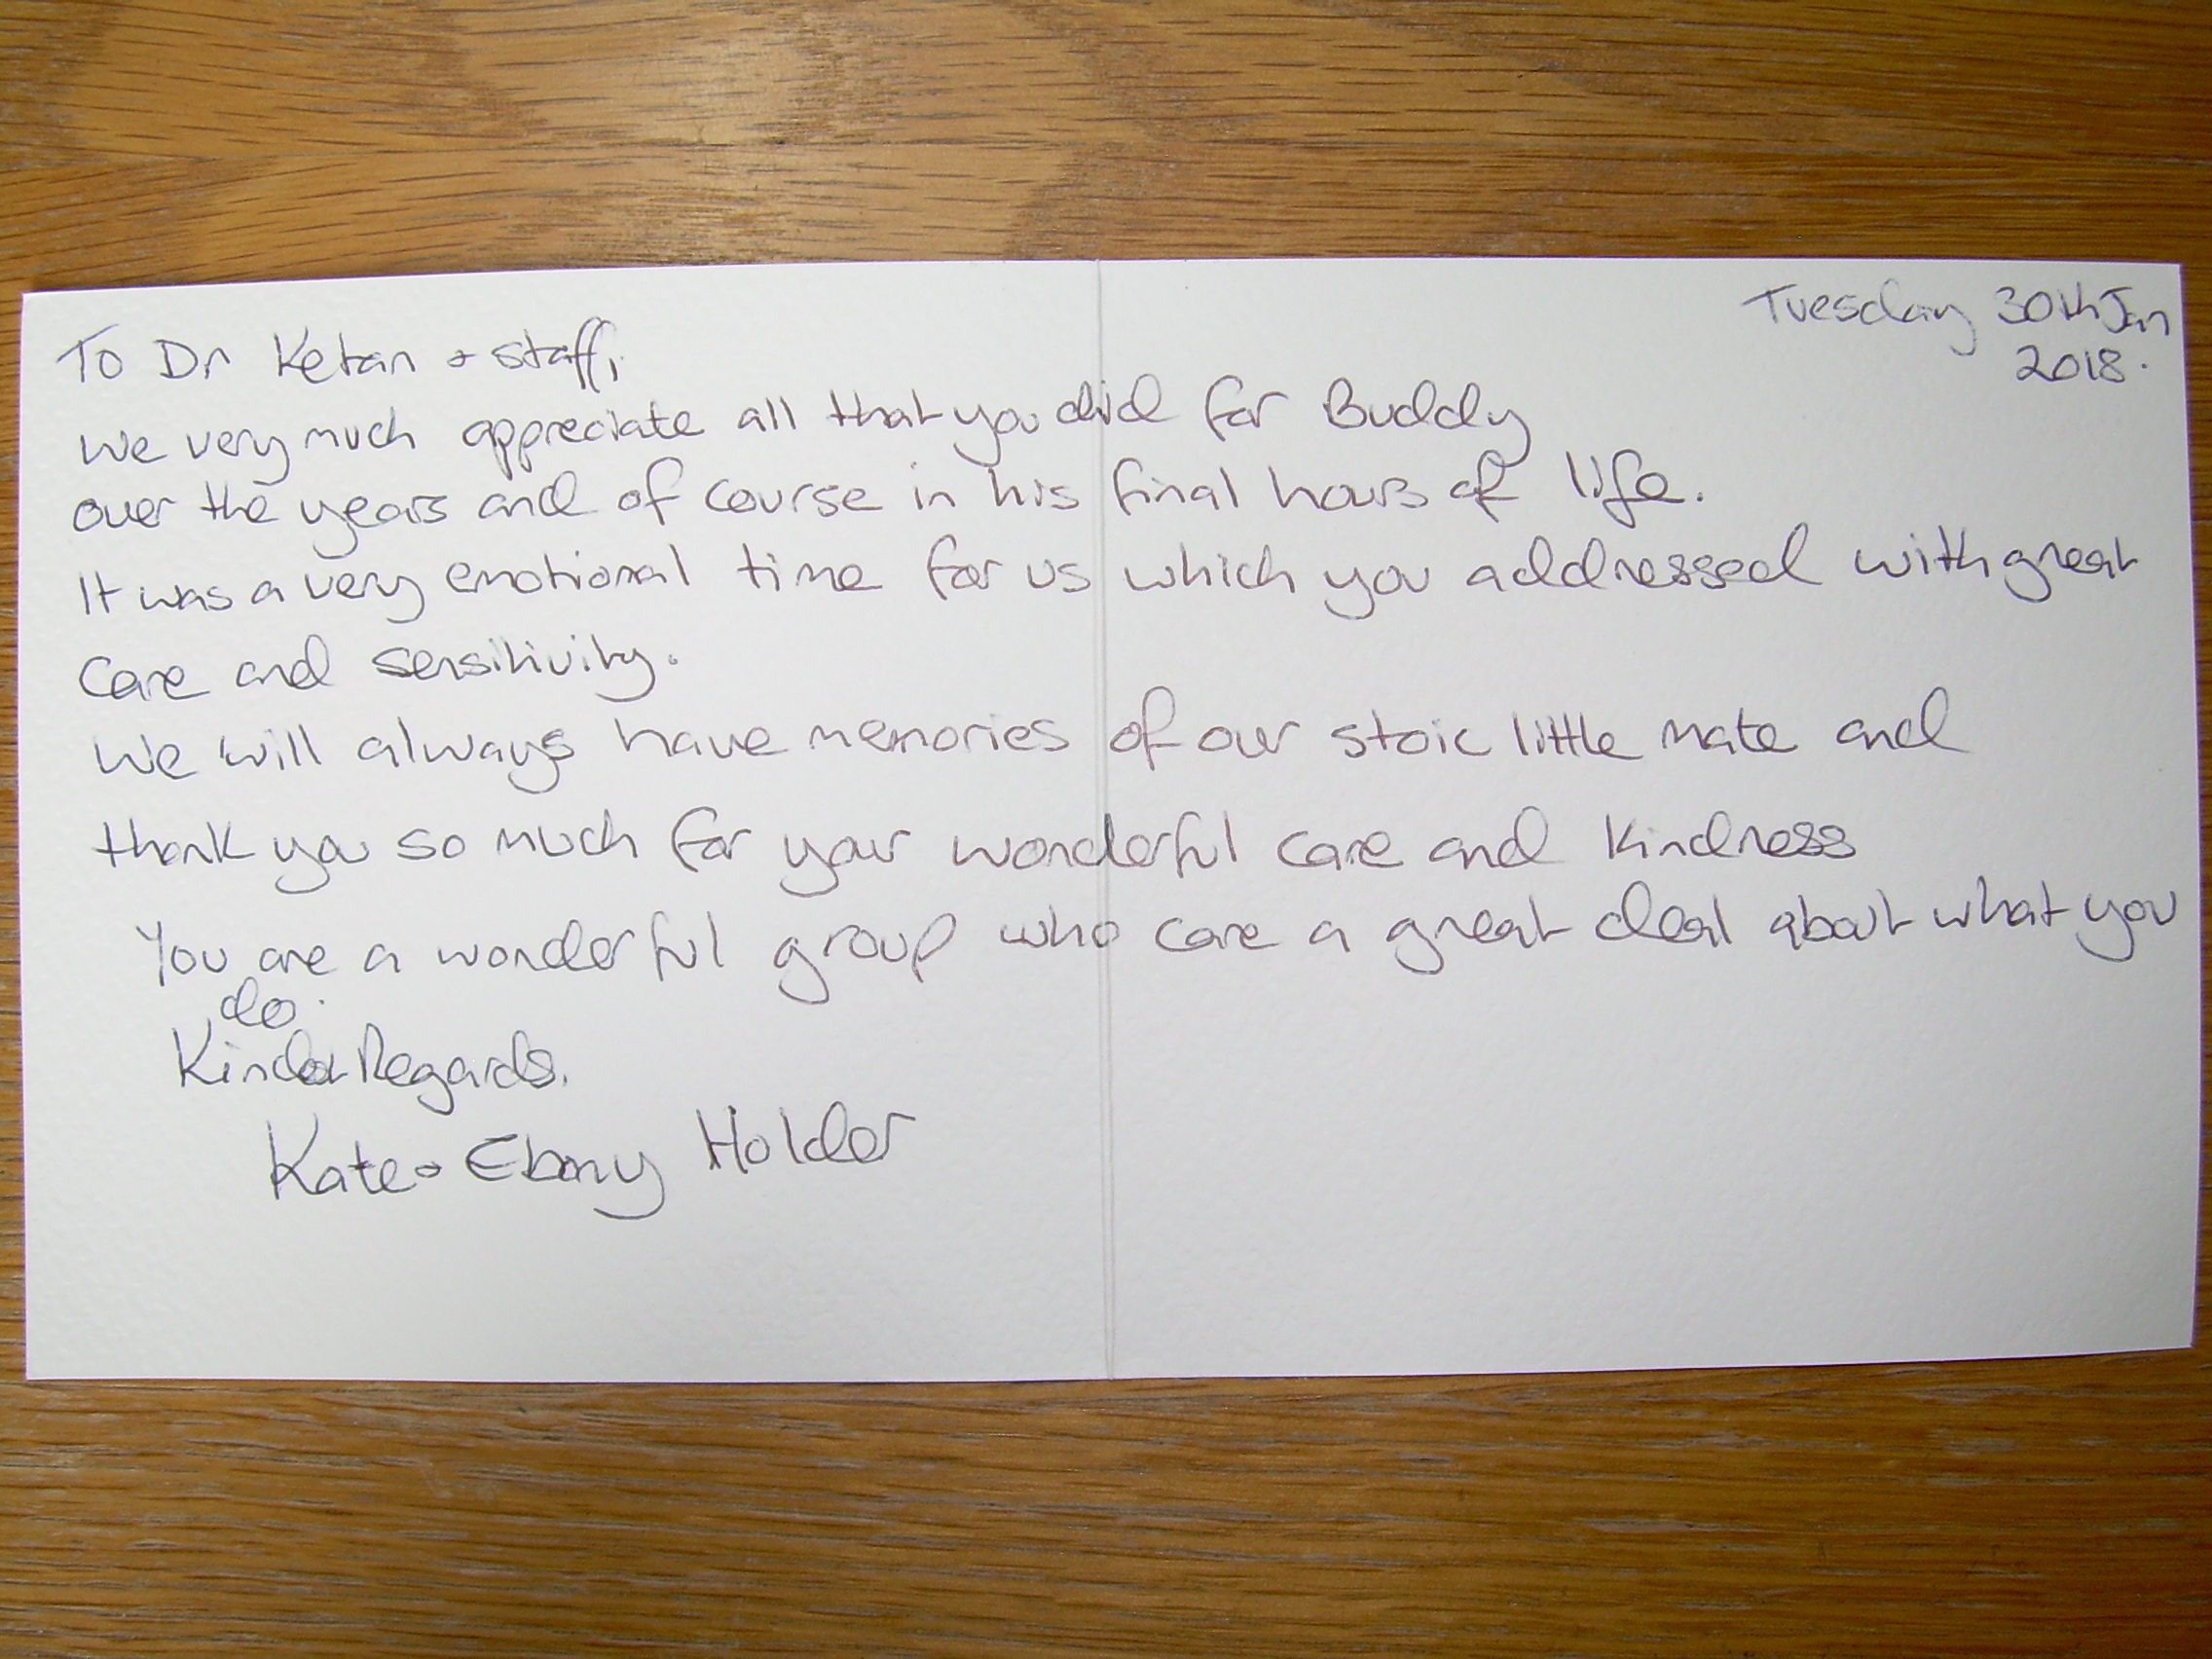 Tuesday 30th Jan
2018.
To Dr Ketan + staff,
We very much appreciate all that you did for Buddy
over the years and of course in his final hours of life.
It was a very emotional time for us which you addressed with great
care and sensitivity.
We will always have memories of our stoic little mate and
thank you so much for your wonderful care and kindness
You are a wonderful group who care a great deal about what you
do.
Kindest Regards.
Kate + Ebony Holder